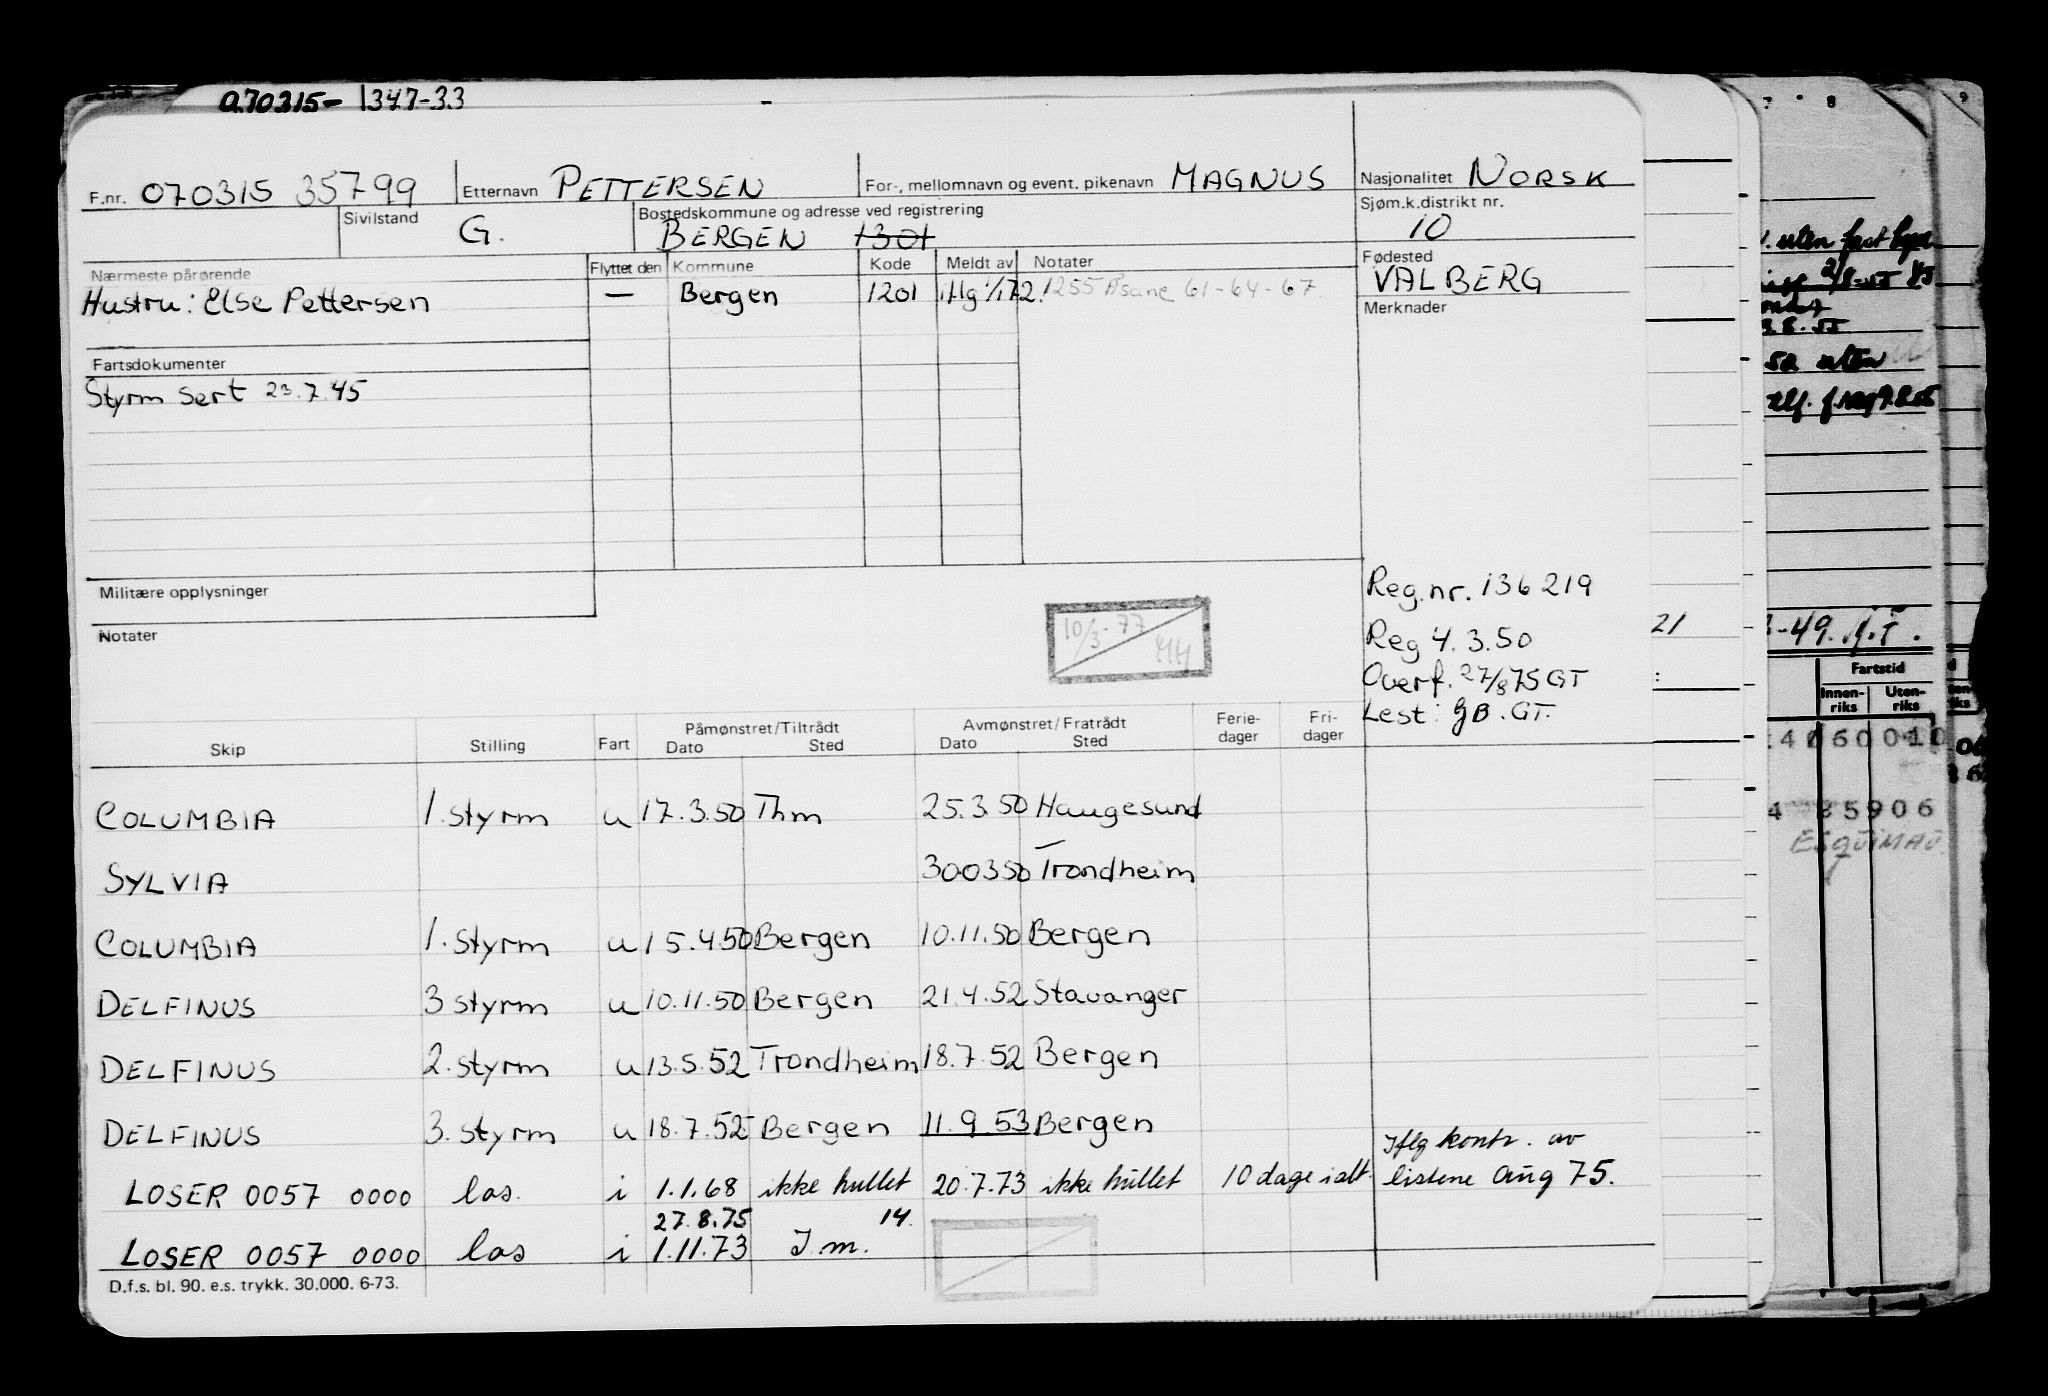 070315- 1347-33
F.nr. 070315 35799 Etternavn PETTERSEN For-, mellomnavn og event. pikenavn MAGNUS Nasjonalitet NORSK
Sivilstand G. Bostedskommune og adresse ved registrering BERGEN 1301 Sjøm.k.distrikt nr. 10
Nærmeste pårørende Flyttet den Kommune Kode Meldt av Notater Fødested VALBERG
Hustru: Else Pettersen — Bergen 1201 1255 Åsane 61-64-67
Merknader
Fartsdokumenter
Styrm Sert 23.7.45
Militære opplysninger
Notater
10/3-77
HH
Reg.nr. 136219
Reg 4.3.50
Overf. 27/8 75 GT
Lest: GB. GT.
Skip Stilling Fart Påmønstret/Tiltrådt Dato Sted Avmønstret/Fratrådt Dato Sted Ferie-dager Fri-dager
COLUMBIA 1. styrm u 17.3.50 Thm 25.3.50 Haugesund
SYLVIA 300350 Trondheim
COLUMBIA 1. styrm u 15.4.50 Bergen 10.11.50 Bergen
DELFINUS 3 styrm u 10.11.50 Bergen 21.4.52 Stavanger
DELFINUS 2. styrm u 13.5.52 Trondheim 18.7.52 Bergen
DELFINUS 3. styrm u 18.7.52 Bergen 11.9.53 Bergen
LOSER 0057 0000 los. i 1.1.68 ikke hullet 20.7.73 ikke hullet 10 dage ialt. Iflg kontr. av
listene Aug 75.
27.8.75 14.
LOSER 0057 0000 los i 1.11.73 I.m.
D.f.s. bl. 90. e.s. trykk. 30.000. 6-73.
21
7 8
9
uten fast
uten
-49.
Fartstid
Innen-riks Uten-riks
85906
ESQUIMAU